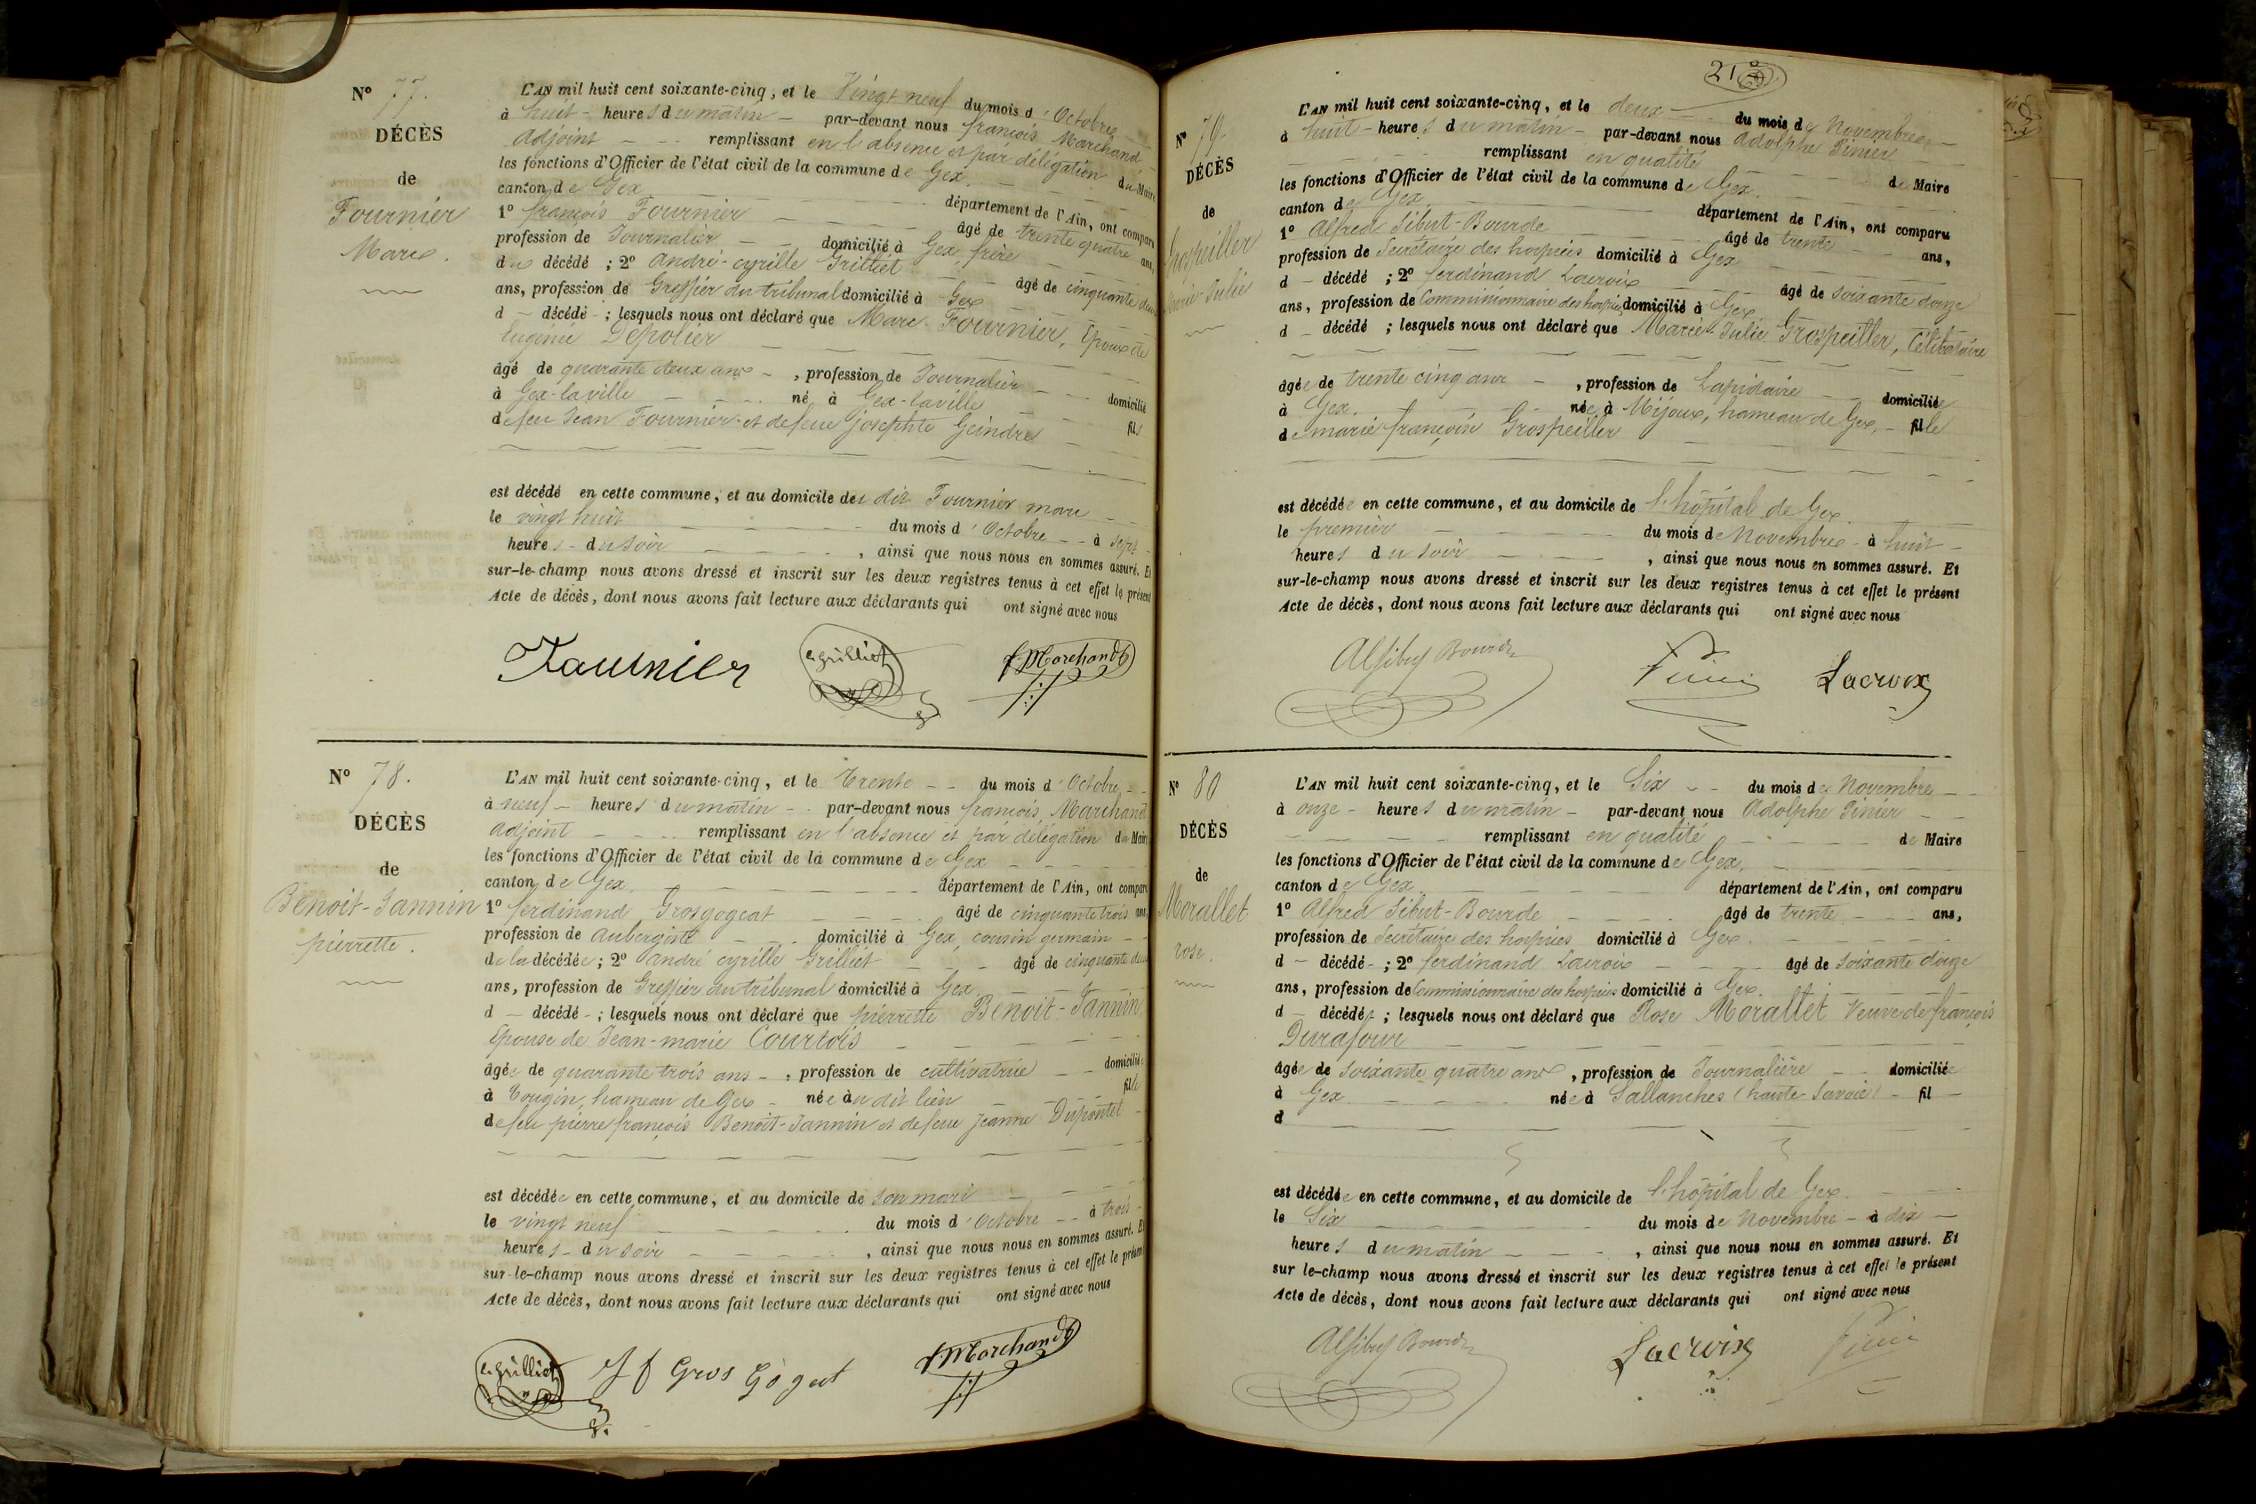 N° 77.
DÉCÈS
de
Fournier
Marc.
L'AN mil huit cent soixante-cinq, et le Vingt neuf du mois d'Octobre
à huit heures du matin par-devant nous françois Marchand
Adjoint remplissant en l'absence et par délégation du Maire
les fonctions d'Officier de l'état civil de la commune de Gex
canton de Gex département de l'Ain, ont comparu
1° françois Fournier âgé de trente quatre ans,
profession de Journalier domicilié à Gex, frère
du décédé ; 2° andré-cyrille Grilliet âgé de cinquante deux
ans, profession de Greffier du tribunal domicilié à Gex
d décédé ; lesquels nous ont déclaré que Marc Fournier, Epoux de
Eugénie Dépolier
âgé de quarante deux ans, profession de Journalier domicilié
à Gex-la ville né à Gex-la ville fils
de feu Jean Fournier et de feue josephte Geindre
est décédé en cette commune, et au domicile du dit Fournier marc
le vingt huit du mois d'Octobre à sept
heures du soir, ainsi que nous nous en sommes assuré. Et
sur-le-champ nous avons dressé et inscrit sur les deux registres tenus à cet effet le présent
Acte de décès, dont nous avons fait lecture aux déclarants qui ont signé avec nous
Faurnier c. grilliet f. Marchand
N° 78.
DÉCÈS
de
Benoit-Jannin
pierrette.
L'AN mil huit cent soixante-cinq, et le Trente du mois d'Octobre
à neuf heures du matin par-devant nous françois Marchand
Adjoint remplissant en l'absence et par délégation du Maire
les fonctions d'Officier de l'état civil de la commune de Gex
canton de Gex département de l'Ain, ont comparu
1° ferdinand Grosgogeat âgé de cinquante trois ans,
profession de aubergiste domicilié à Gex, cousin germain
de la décédée ; 2° andré cyrille Grilliet âgé de cinquante deux
ans, profession de Greffier du tribunal domicilié à Gex
d décédé ; lesquels nous ont déclaré que pierrette Benoit-Jannin
Epouse de Jean-marie Courtois
âgée de quarante trois ans, profession de cultivatrice domiciliée
à Tougin, hameau de Gex née au dit lieu fille
de feu pierre françois Benoit-Jannin et de feue Jeanne Dupontet
est décédée en cette commune, et au domicile de son mari
le vingt neuf du mois d'Octobre à trois
heures du soir, ainsi que nous nous en sommes assuré. Et
sur-le-champ nous avons dressé et inscrit sur les deux registres tenus à cet effet le présent
Acte de décès, dont nous avons fait lecture aux déclarants qui ont signé avec nous
c. grilliet J f Gros Gogeat f. Marchand
21
N° 79.
DÉCÈS
de
Grospeiller
Marie-Julie
L'AN mil huit cent soixante-cinq, et le deux du mois de Novembre
à huit heures du matin par-devant nous Adolphe Pinier
remplissant en qualité de Maire
les fonctions d'Officier de l'état civil de la commune de Gex
canton de Gex département de l'Ain, ont comparu
1° Alfred Sibut-Bourde âgé de trente ans,
profession de Secrétaire des hospices domicilié à Gex
d décédé ; 2° ferdinand Lacroix âgé de soixante douze
ans, profession de Commissionnaire des hospices domicilié à Gex
d décédé ; lesquels nous ont déclaré que Marie-Julie Grospeiller, Célibataire
âgée de trente cinq ans, profession de Lapidaire domiciliée
à Gex. née à Mijoux, hameau de Gex, fille
de marie françoise Grospeiller
est décédée en cette commune, et au domicile de l'hôpital de Gex.
le premier du mois de Novembre à huit
heures du soir, ainsi que nous nous en sommes assuré. Et
sur-le-champ nous avons dressé et inscrit sur les deux registres tenus à cet effet le présent
Acte de décès, dont nous avons fait lecture aux déclarants qui ont signé avec nous
Alf Sibut Bourde Pinier Lacroix
N° 80
DÉCÈS
de
Morallet
rose.
L'AN mil huit cent soixante-cinq, et le Six du mois de Novembre
à onze heures du matin par-devant nous Adolphe Pinier
remplissant en qualité de Maire
les fonctions d'Officier de l'état civil de la commune de Gex,
canton de Gex département de l'Ain, ont comparu
1° Alfred Sibut-Bourde âgé de trente ans,
profession de Secrétaire des hospices domicilié à Gex.
d décédé ; 2° ferdinand Lacroix âgé de soixante douze
ans, profession de Commissionnaire des hospices domicilié à Gex.
d décédée ; lesquels nous ont déclaré que Rose Morallet Veuve de françois
Durafour
âgée de soixante quatre ans, profession de Journalière domiciliée
à Gex née à Sallanches (haute-Savoie) fil
d
est décédée en cette commune, et au domicile de l'hôpital de Gex.
le Six du mois de Novembre à dix
heures du matin, ainsi que nous nous en sommes assuré. Et
sur le-champ nous avons dressé et inscrit sur les deux registres tenus à cet effet le présent
Acte de décès, dont nous avons fait lecture aux déclarants qui ont signé avec nous
Alf Sibut Bourde Lacroix Pinier